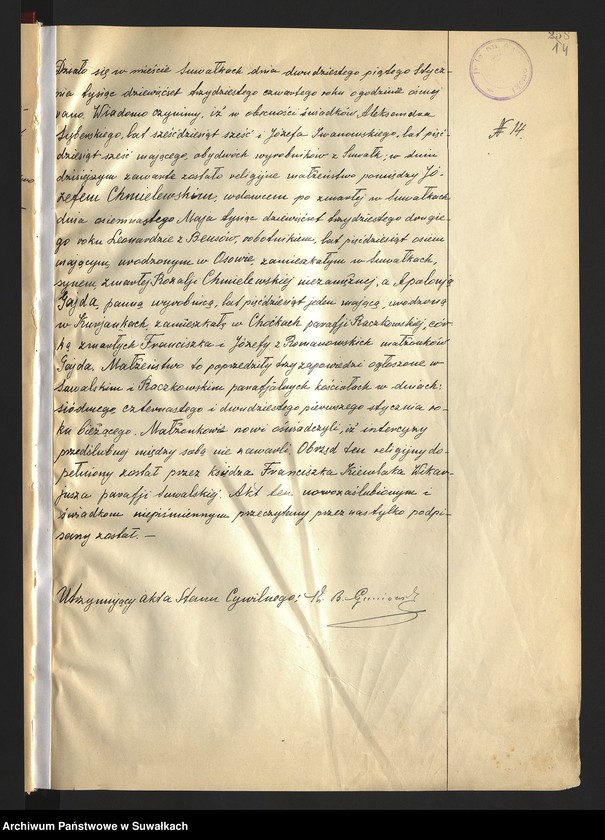 14
№ 14.
Działo się w mieście Suwałkach dnia dwudziestego piątego Stycz-
nia tysiąc dziewięćset trzydziestego czwartego roku o godzinie ósmej
rano. Wiadomo czynimy, iż w obecności świadków Aleksandra
lat sześćdziesiąt sześć i Józefa Iwanowskiego, lat pięć-
dziesiąt sześć mającego, obydwóch wyrobników z Suwałk; w dniu
dzisiejszym zawarte zostało religijne małżeństwo pomiędzy Jó-
zefem Chmielewskim, wdowcem po zmarłej w Suwałkach
dnia osiemnastego Maja tysiąc dziewięćset trzydziestego drugie-
go roku Leonardzie z Bensów, robotnikiem, lat pięćdziesiąt osiem
mającym, urodzonym w Osowie, zamieszkałym w Suwałkach,
synem, zmarłej Rozalji Chmielewskiej niezamężnej, a Apolonją
Gajda, panną wyrobnicą, lat pięćdziesiąt jeden mającą, urodzoną
w Kurjankach, zamieszkałą w Choćkach parafji Raczkowskiej, cór-
ką zmarłych Franciszka i Józefy z Romanowskich małżonków
Gajda. Małżeństwo to poprzedziły trzy zapowiedzi ogłoszone w
Suwalskim i Raczkowskim parafjalnych kościołach w dniach:
siódmego czternastego i dwudziestego pierwszego stycznia ro-
ku bieżącego. Małżonkowie nowi oświadczyli, iż intercyzy
przedślubnej między sobą nie zawarli. Obrzęd ten religijny do-
pełniony został przez księdza Franciszka Wikar-
jusza parafji Suwalskiej. Akt ten nowozaślubionym i
świadkom niepiśmiennym przeczytany przez nas tylko podpi-
sany został. —
Utrzymujący akta Stanu Cywilnego:
Archiwum Państwowe w Suwałkach